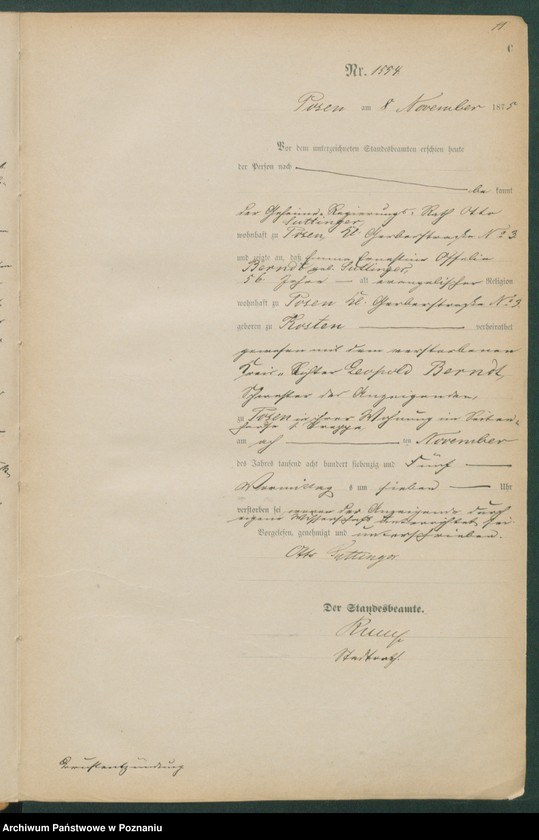 11.
C
Nr. 1554.
Posen am 8 November 1875
Vor dem unterzeichneten Standesbeamten erschien heute
der Person nach
be kannt
der Geheime Regierungs-Rath Otto
wohnhaft zu Posen, Kl. Gerberstraße No 3
und zeigte an, daß Emma Ernestine Ottilie
Berndt geb.
56 Jahre alt evangelischer Religion
wohnhaft zu Posen Kl. Gerberstraße No 3
geboren zu Kosten verheirathet
gewesen mit dem verstorbenen
Kreis-Richter Leopold Berndt,
Schwester des Anzeigenden,
zu Posen in ihrer Wohnung in
am acht ten November
des Jahres tausend acht hundert siebenzig und Fünf
Vormittags um sieben Uhr
verstorben sei, wovon der Anzeigende durch
eigene Wissenschaft unterrichtet sei.
Vorgelesen, genehmigt und unterschrieben.
Otto
Der Standesbeamte.
Stadtrath.
Archiwum Państwowe w Poznaniu